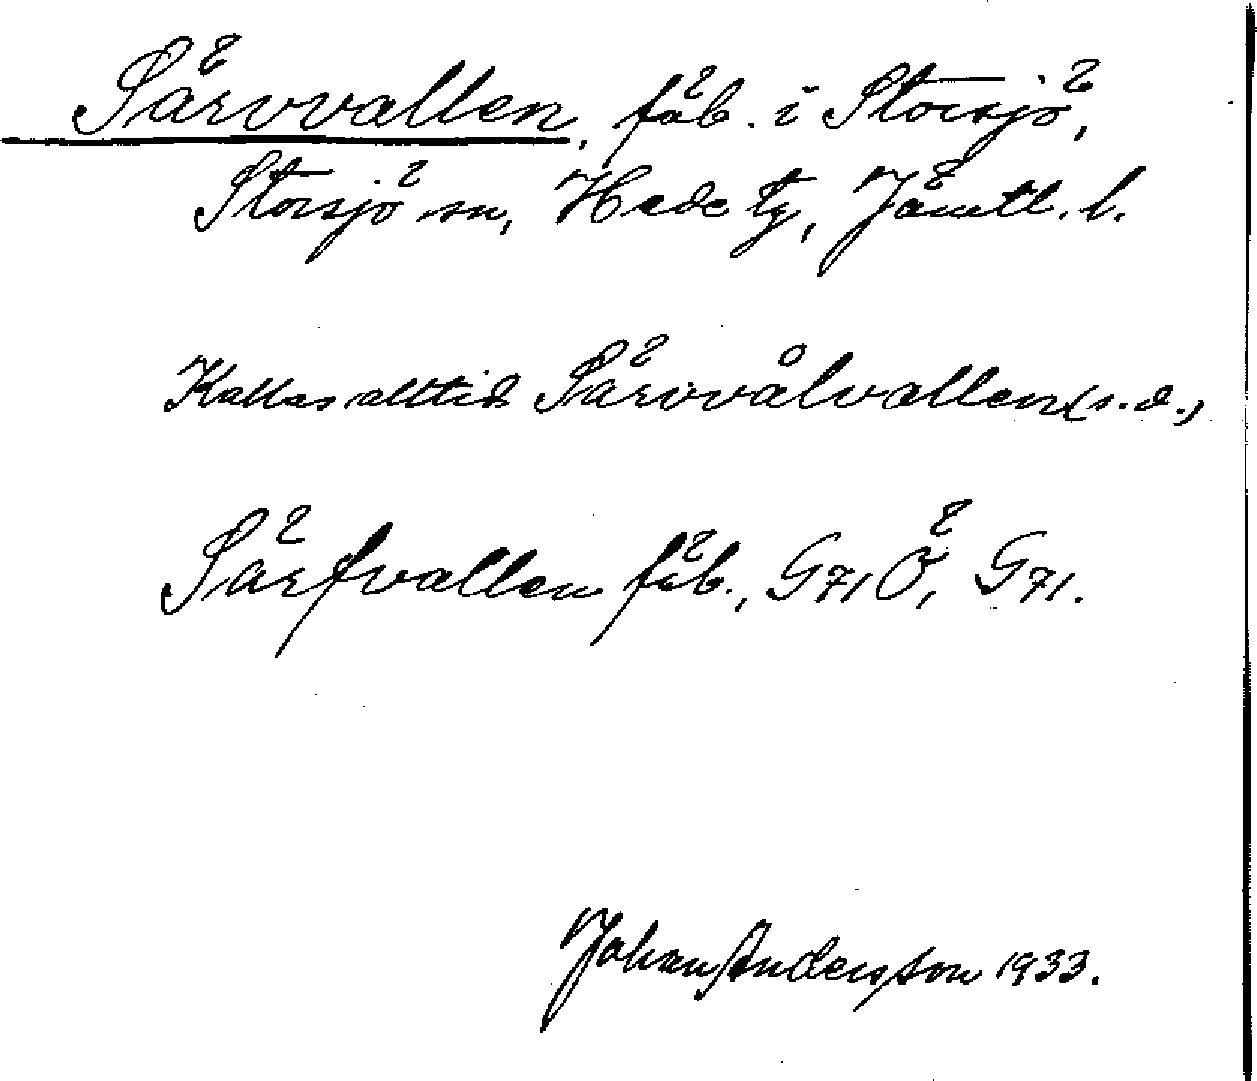 Särvvallen, fäb. i Storsjö,
Storsjö sn, Hede tg, Jämtl. l.
Kallas alltid Särvvålvallen (s.d.)
Särfvallen fäb., G71Ö, G71.
Johan Andersson 1933.